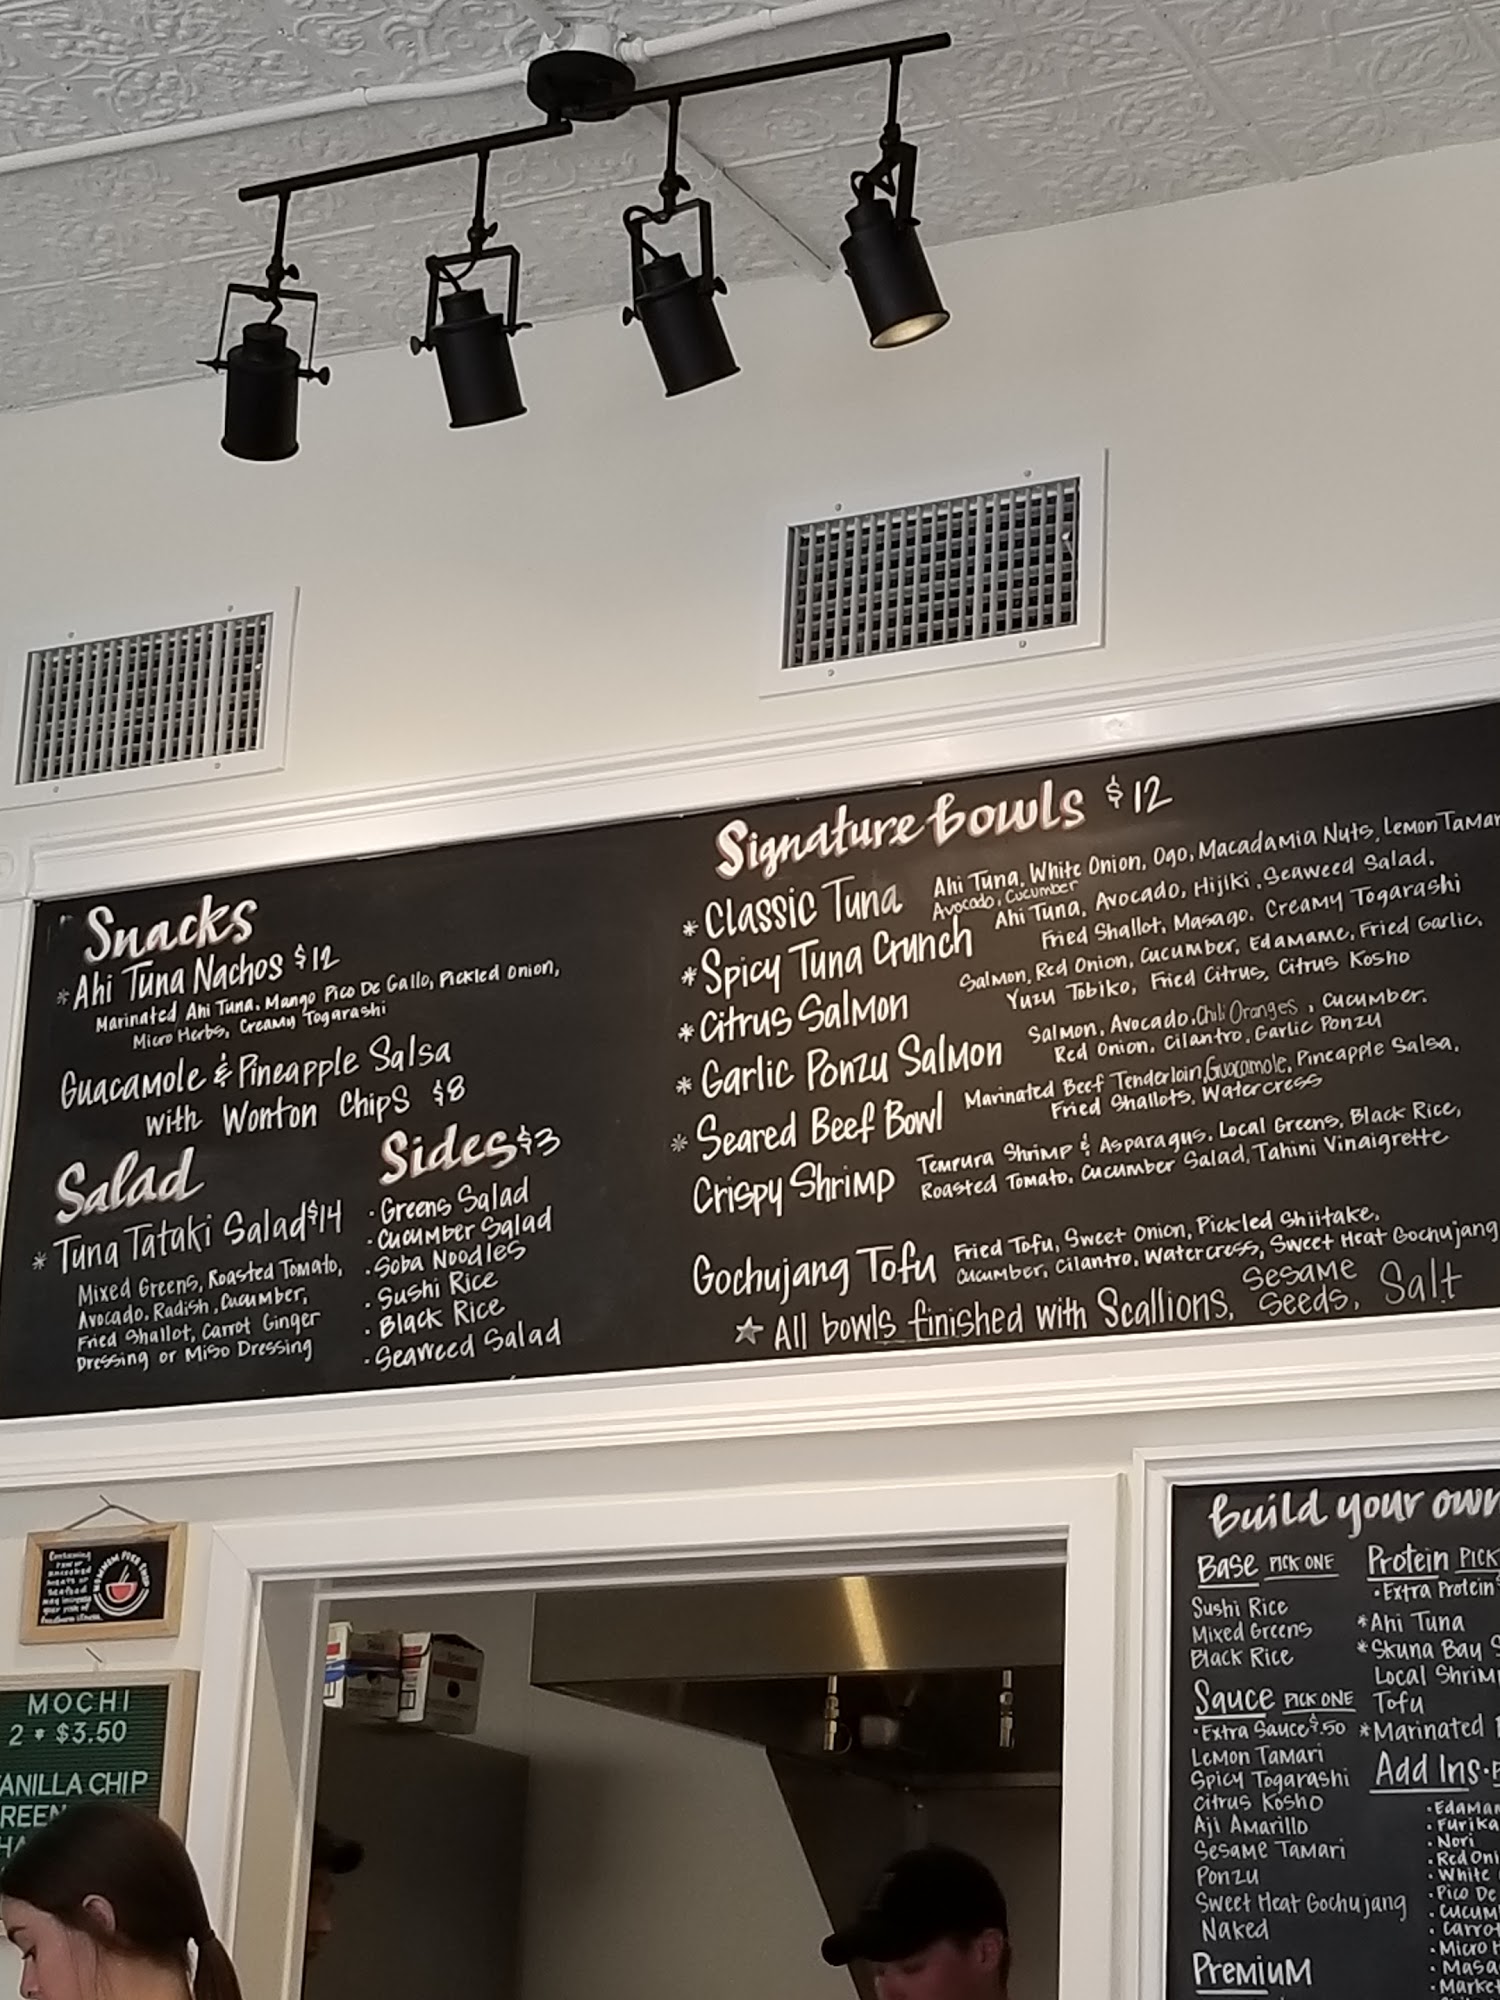 Snacks
*Ahi Tuna Nachos $12
Marinated Ahi Tuna, Mango Pico De Gallo, Pickled Onion,
Micro Herbs, Creamy Togarashi
Guacamole & Pineapple Salsa
with Wonton Chips $8
Salad
*Tuna Tataki Salad $14
Mixed Greens, Roasted Tomato,
Avocado, Radish, Cucumber,
Fried Shallot, Carrot Ginger
Dressing or Miso Dressing
Sides $3
·Greens Salad
·Cucumber Salad
·Soba Noodles
·Sushi Rice
·Black Rice
·Seaweed Salad
Signature Bowls $12
*Classic Tuna
Ahi Tuna, White Onion, Ogo, Macadamia Nuts, Lemon Tamar
Avocado, Cucumber
*Spicy Tuna Crunch
Ahi Tuna, Avocado, Hijiki, Seaweed Salad.
Fried Shallot, Masago. Creamy Togarashi
*Citrus Salmon
Salmon, Red Onion, Cucumber, Edamame, Fried Garlic,
Yuzu Tobiko, Fried Citrus, Citrus Kosho
*Garlic Ponzu Salmon
Salmon, Avocado, Chili Oranges, Cucumber.
Red Onion, Cilantro, Garlic Ponzu
*Seared Beef Bowl
Marinated Beef Tenderloin, Guacamole, Pineapple Salsa,
Fried Shallots, Watercress
Crispy Shrimp
Tempura Shrimp & Asparagus, Local Greens, Black Rice,
Roasted Tomato, Cucumber Salad, Tahini Vinaigrette
Gochujang Tofu
Fried Tofu, Sweet Onion, Pickled Shiitake,
Cucumber, Cilantro, Watercress, Sweet Heat Gochujang
★ All bowls finished with Scallions, Sesame Seeds, Salt
Containing
raw or
meats or
seafood
may increase
your risk of
POKE SHOP
MOCHI
2 * $3.50
ANILLA CHIP
REEN
HA
Build your own
Base PICK ONE
Sushi Rice
Mixed Greens
Black Rice
Sauce PICK ONE
·Extra Sauce $.50
Lemon Tamari
Spicy Togarashi
Citrus Kosho
Aji Amarillo
Sesame Tamari
Ponzu
Sweet Heat Gochujang
Naked
Premium
Protein PICK
·Extra Protein
*Ahi Tuna
*Skuna Bay S
Local Shrimp
Tofu
*Marinated
Add Ins·
·Edamam
·Furika
·Nori
·Red Oni
·White
·Pico De
·Cucum
·Carrot
·Micro H
·Masa
·Marke